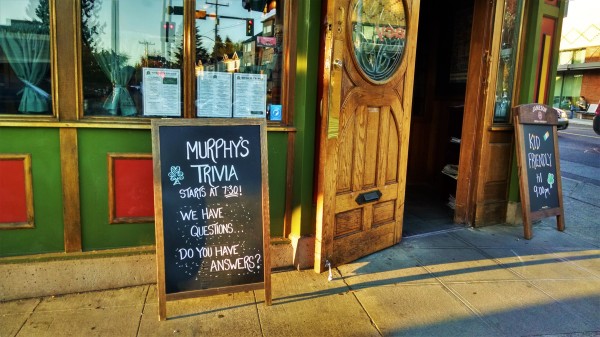 MURPHY'S
TRIVIA
STARTS AT 7:30!
WE HAVE
QUESTIONS...
DO YOU HAVE
ANSWERS?
KID
FRIENDLY
til
9:00pm